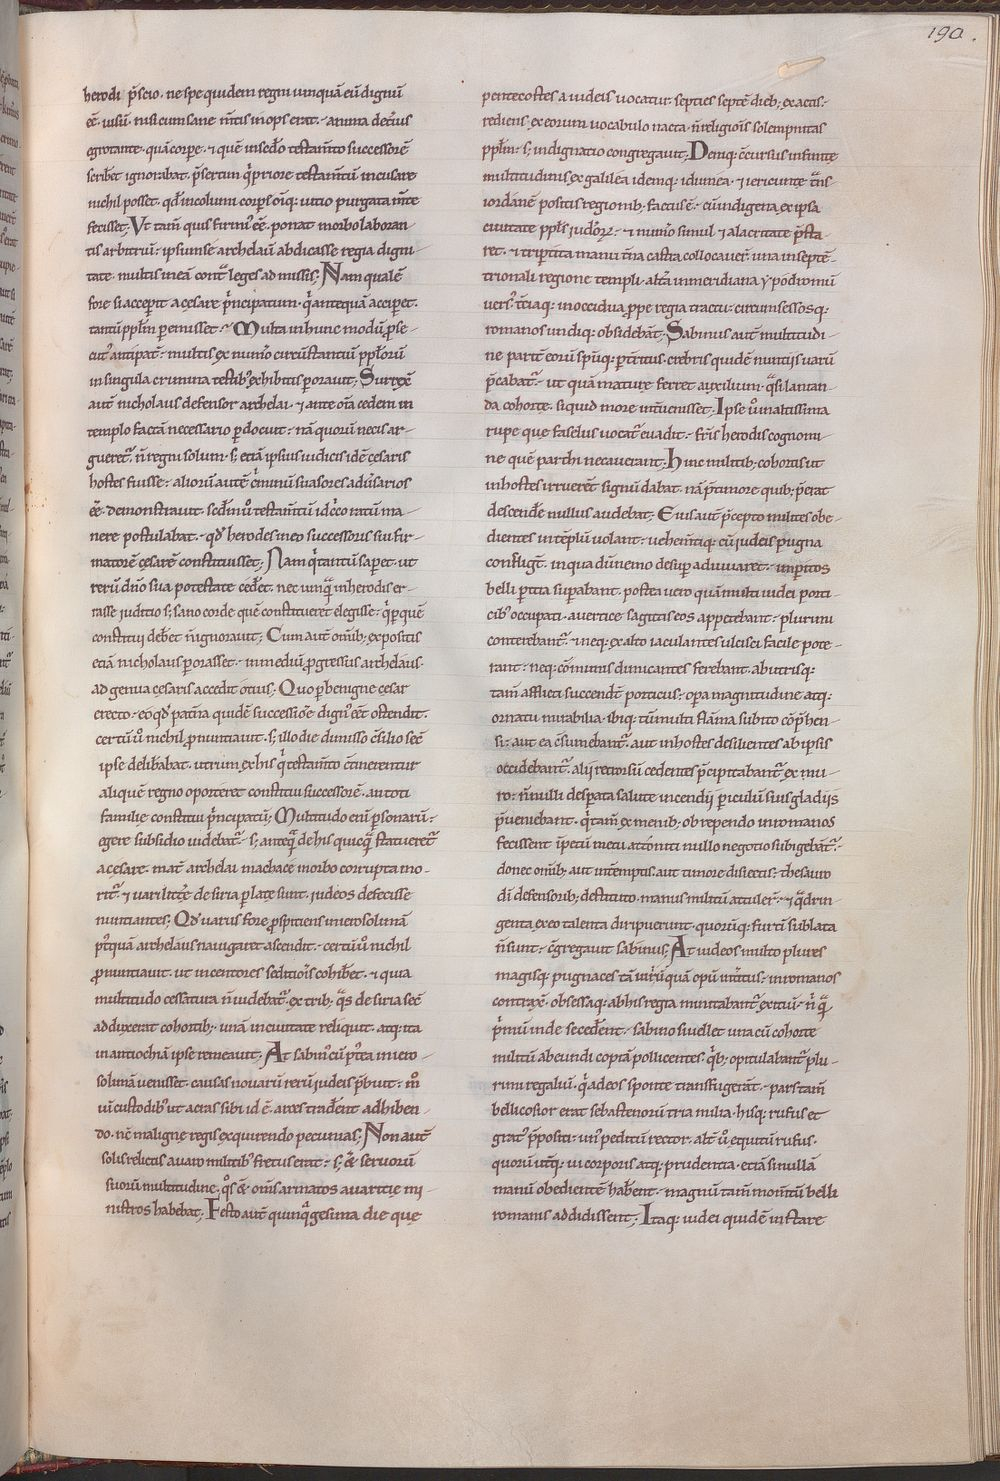 190.
herodi p̄scio. ne spe quidem regni unquā eū dignū
eē uisū. nisi cum sane m̄tis inops erat. anima deti᷒us
egrotante quā corpe. ⁊ quē insedō testam̄to successorē
scribet ignorabat. p̄sertim q̇ priore testam̄tū incusare
nichil posset. qd̄ incolumi corpe oīq; uitio purgata m̄te
fecisset; Vt tam̄ quis firmi᷒ eē ponat morbo laboran-
tis arbitriū: ipsum se archelaū abdicasse regia digni-
tate multis in eā cont̃ leges admissis; Nam qualē
fore si accepit a cesare p̄ncipatum. q̇ antequā accipet.
tantū pplm̄ pemisset; Multa in hunc modū p̄se-
cut᷒ antipat̃. multis ex num̄o circūstantiū pplorū
in singula crimina testib᷒ exhibitis poraut; Surrexē
aut̄ nicholaus defensor archelai. ⁊ ante oīa cedem in
templo factā necessario pdocuit. nā quorū necis ar-
gueret̃. n̄ regni solum. s; etiā ipsius iudicis idē cesaris
hostes fuisse. aliorū autē c̄minū suasores aduersarios
eē demonstrauit. secdm̄ u᷒ testam̄tū idcco ratū ma-
nere postulabat. qd̄ herodes in eo successoris sui fir-
matorē cesarē constituisset; Nam q̇ tantū sapet. ut
rerū dn̄o sua potestate cedet. nec unq̃ in herodis er-
rasse iuditio s; sano corde quē constitueret elegisse. q̇pe quē
constitui debet n̄ ignorauit; Cum aut̄ om̄ib; expositis
etiā nicholaus porasset. in mediū pgressus archelaus.
ad genua cesaris accedit otius; Quo pbenigne cesar
erecto. eo qd̄ patna quidē successiōe dign᷒ eēt ostendit.
certū u᷒ nichil pnuntiauit. s; illo die dimisso c̄silio secū
ipse delibabat. utrum ex his q̇ testam̄to c̄tinerentur
aliquē regno oporteret constitui successorē. an toti
familie constitui p̄ncipatū; Multitudo eni psonarū
egere subsidio uidebat̃. s; anteq̃ de his quicq̃ statueret̃
a cesare. mat̃ archelai machace morbo corrupta mo-
rit̃. ⁊ uari litere de siria plate sunt. iudeos defecisse
nuntiantes; Qd̄ uarus fore pspitiens in ierosolimā
p̄tquā archelaus nauigaret ascendit. certū u᷒ nichil
pnuntiauit. ut incentores seditiōis cohibet. ⁊ quia
multitudo cessatura n̄ uidebat̃. ex trib; q̃s de siria secū
adduxerat cohortib;. unā in ciuitate reliquit. atq; ita
in antiochiā ipse remeauit; At sabin᷒ cū p̄tea in iero-
solimā uenisset. causas nouarū rerū iudeis p̄buit.
ui custodib᷒ ut arces sibi id ē arces tradent adhiben-
do. nc̄ maligne regis exquirendo pecunias; Non aut̄
solis relictis a uaro militib᷒ fretus erat. s; ⁊ seruorū
suorū multitudine. q᷒s ⁊ om̄s armatos auaritie mi-
nistros habebat; Festo aut̄ quinq̃gesima die que
pentecostes a iudeis uocatur. septies septē dieb; exactis.
rediens ex eorum uocabulo nacta. n̄ religiōis solempnitas
pplm̄. s; indignatio congregauit; Deniq; c̄cursus infinite
multitudinis ex galilea idemq; idumea. ⁊ iericunte t̃ns
iordanē positis regionib; factus ē. cū indigena ex ipsa
ciuitate ppls iudeo℞. ⁊ num̄o simul ⁊ alacritate p̄sta-
ret. ⁊ triptita manu t̄na castra collocauer̄. una in septē-
trionali regione templi. alt̄a in meridiana yp̄odromū
uers᷒. t̄tiaq; in occidua ppe regia tractu. circumsessosq;
romanos undiq; obsidebāt; Sabinus aut̄ multitudi-
ne partē eorū sp̄uq; pterritus crebris quidē nuntiis uarū
p̄cabat̃. ut quā mature ferret auxilium. q̃si lanian-
da cohorte. siquid more int̄uenisset; Ipse u᷒ in altissima
rupe que faselus uocat̃ euadit. fr̄is herodis cognomi-
ne quē parthi necauerant; Hinc militib; cohortis ut
in hostes irruerēt signū dabat. nā p̄ timore quib; p̄erat
descende nullus audebat; Eius aut̄ p̄cepto milites obe-
dientes in tēplū uolant. uehem̄tiq; cū iudeis pugna
confligt̄. in qua dū nemo desup adiuuaret. impitos
belli pitia supabant. postea uero quā multi iudei porti-
cib᷒ occupati. a uertice sagittis eos appetebant. plurimi
conterebant̃. neq; ex alto iaculantes ulcisci facile pote-
rant. neq; cōminus dimicantes ferebant. ab utrisq;
tam̄ afflicti succendūt porticus. opa magnitudine atq;
ornatu mirabilia. ibiq; tū multi flāma subito cōp̄hen-
si. aut ea c̄sumebant̃. aut in hostes desilientes ab ipsis
occidebant̃. alii rectorsū cedentes p̄cipitabant̃ ex mu-
ro. n̄nulli despata salute incendii piculū suis gladiis
p̄ueniebant. q̇ tam̄ ex menib; obrependo in romanos
fecissent ip̄etū metu attoniti nullo negotio subigebāt̃.
donec om̄ib; aut int̄emptis. aut timore disiectis. thesauro
di᷒ defensorib; destituto. manus militū attuler̄. ⁊ q̃drin-
genta ex eo talenta diripuerunt. quorūq; furti sublata
n̄ sunt. c̄gregauit sabinus; At iudeos multo plures
magisq; pugnaces tā uirū quā opū int̄itus. in romanos
contraxē. obsessaq; ab his regia minitabant̃ exitiū. n̄ q̃
p̄mū inde secedent. sabino si uellet una cū cohorte
militū abeundi copiā pollicentes. q̇b; opitulabant̃ plu-
rimi regaliū. q̇ ad eos sponte transfugerāt. pars tam̄
bellicosior erat sebastenorū tria milia. hisq; rufus et
grat᷒ p̄positi. un᷒ peditū rector. alt̄ u᷒ equitū rufus.
quorū ut̄q; ui corporis atq; prudentia. etiā si nullā
manū obedientē habent. magnū tam̄ mom̄tū belli
romanis addidissent; Itaq; iudei quidē instare